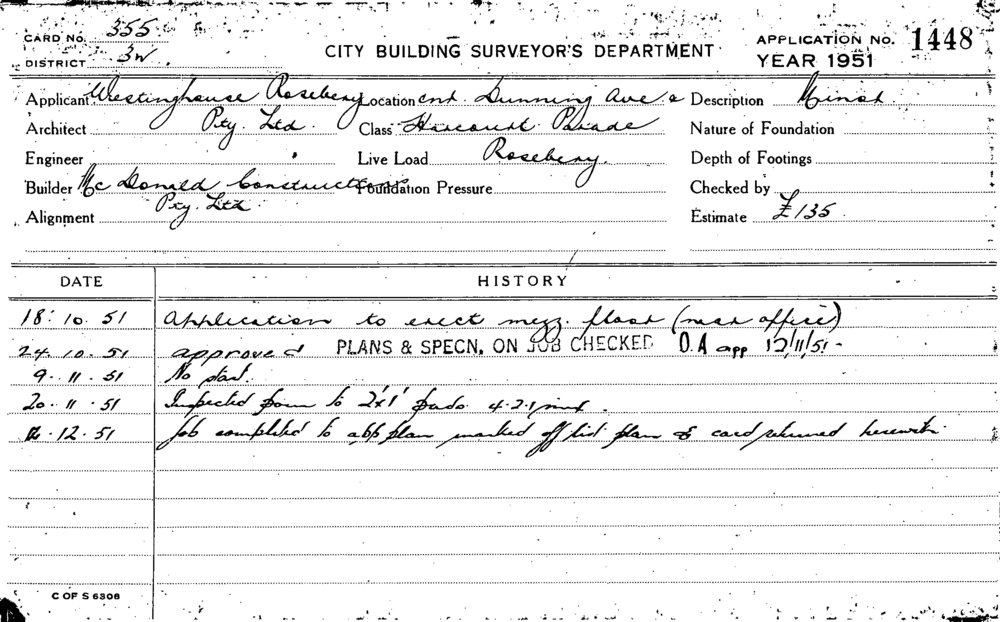 CARD No. 355
DISTRICT 3W.
CITY BUILDING SURVEYOR'S DEPARTMENT
APPLICATION No. 1448
YEAR 1951
Applicant Westinghouse Rosebery Location cnr. Dunning Ave & Description Minor
Architect Pty. Ltd. Class Harcourt Parade Nature of Foundation
Engineer Live Load Rosebery. Depth of Footings
Builder McDonald Constructions Foundation Pressure Checked by
Pty. Ltd
Alignment Estimate £135
DATE HISTORY
18. 10. 51 Application to erect mezz. floor (near office)
24. 10. 51 approved PLANS & SPECN, ON JOB CHECKED O.A app 12/11/51-
9. 11. 51 No start.
20. 11. 51 Inspected to 2'x1' 4.2.1 mix.
12. 51 Job completed to plan marked off plan & card returned herewith
C OF S 6306